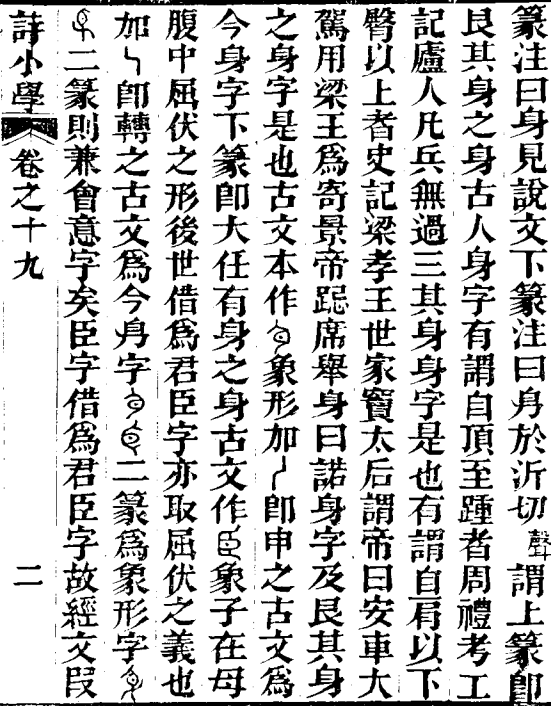 篆注曰身見說文下篆注曰㐆於沂切聲謂上篆卽
艮其身之身古人身字有謂自頂至踵者周禮考工
記廬人凡兵無過三其身身字是也有謂自肩以下
臀以上者史記梁孝王世家竇太后謂帝曰安車大
駕用梁王爲寄景帝跽席舉身曰諾身字及艮其身
之身字是也古文本作象形加卽申之古文爲
今身字下篆卽大任有身之身古文作象子在母
腹中屈伏之形後世借爲君臣字亦取屈伏之義也
加卽轉之古文爲今㐆字二篆爲象形字
二篆則兼會意字矣臣字借爲君臣字故經文叚
詩小學
卷之十九
二